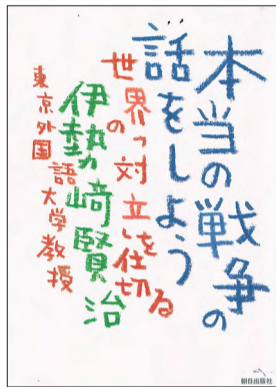 本当の戦争の
話をしよう
世界の「対立」を仕切る
伊勢﨑賢治
東京外国語大学教授
朝日出版社